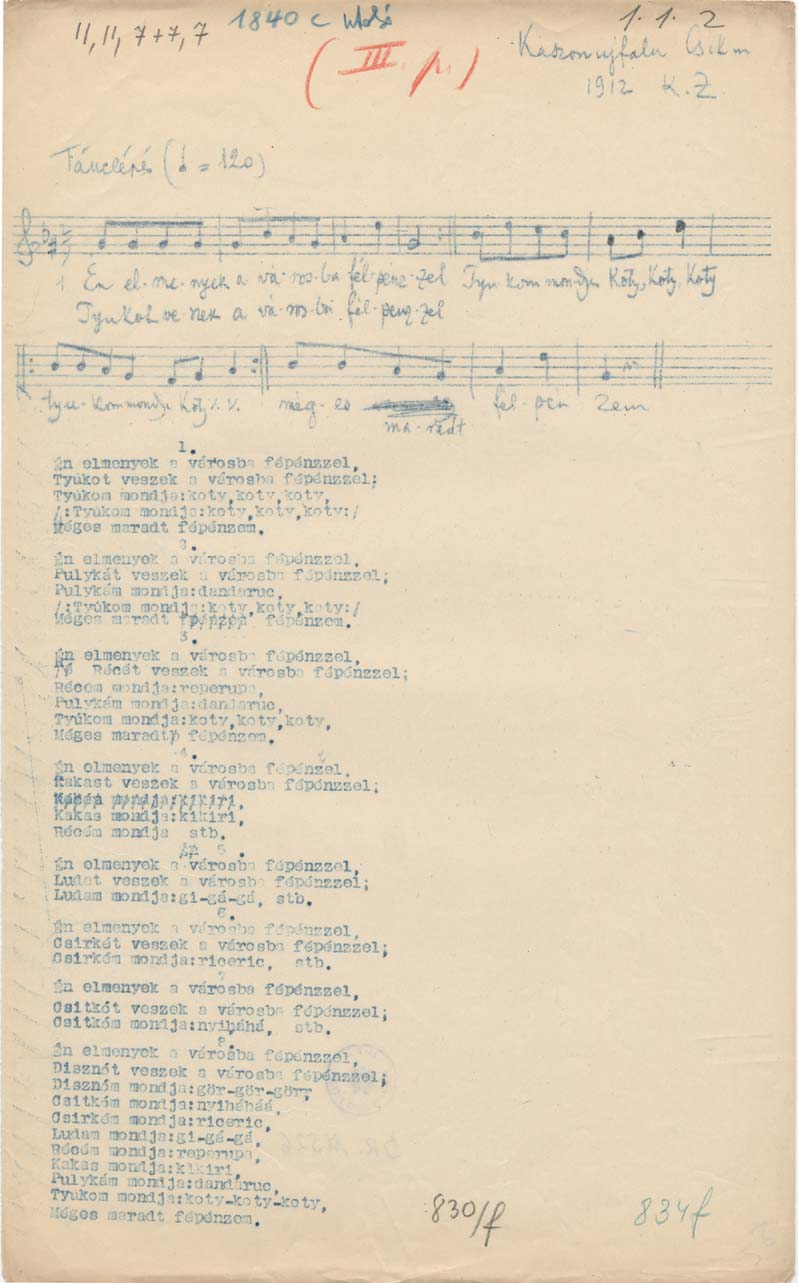 11, 11, 7+7, 7
1840 c utolsó
1. 1. 2
(III. )
Kászonujfalu Csík m
1912 K. Z.
Tánclépés (♩ = 120)
1 Én el-me-nyek a vá-ros-ba fél-pénz-zel Tyu kom mondja Koty, Koty, Koty
Tyukot ve szek a vá-ros-ba fél-penz-zel
tyu-kom mondja Koty ٪ ٪ még-es ma-radt fél-pén zem
1.
Én elmenyek a városba fépénzzel,
Tyúkot veszek a városba fépénzzel;
Tyúkom mondja:koty,koty,koty,
/:Tyúkom mondja:koty,koty,koty:/
Méges maradt fépénzem.
2.
Én elmenyek a városba fépénzzel,
Pulykát veszek a városba fépénzzel;
Pulykám mondja:dandaruc,
/:Tyúkom mondja:koty,koty,koty:/
Méges maradt fépénzem fépénzem.
3.
Én elmenyek a városba fépénzzel,
Récét veszek a városba fépénzzel;
Récém mondja:reperupa,
Pulykám mondja:dandaruc,
Tyúkom mondja:koty,koty,koty,
Méges maradt fépénzem.
4.
Én elmenyek a városba fépénzel,
Kakast veszek a városba fépénzzel;
mondja:kikiri,
Kakas mondja:kikiri,
Récém mondja stb.
5.
Én elmenyek a városba fépénzzel,
Ludat veszek a városba fépénzzel;
Ludam mondja:gi-gá-gá, stb.
6.
Én elmenyek a városba fépénzzel,
Csirkét veszek a városba fépénzzel;
Csirkém mondja:riceric, stb.
7
Én elmenyek a városba fépénzzel,
Csitkót veszek a városba fépénzzel;
Csitkóm mondja:nyiháhá, stb.
8.
Én elmenyek a városba fépénzzel,
Disznót veszek a városba fépénzzel;
Disznóm mondja:gör-gör-görr
Csitkóm mondja:nyiháháá,
Csirkém mondja:riceric,
Ludam mondja:gi-gá-gá,
Récém mondja:reperupa,
Kakas mondja:kikiri,
Pulykám mondja:dandaruc,
Tyukom mondja:koty-koty-koty,
Méges maradt fépénzem.
830/f
834f